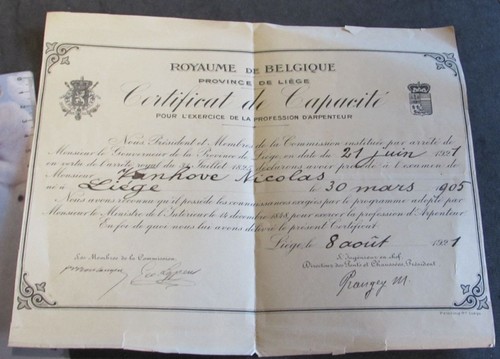 ROYAUME DE BELGIQUE
PROVINCE DE LIÉGE
Certificat de Capacité
POUR L'EXERCICE DE LA PROFESSION D'ARPENTEUR
Nous Président et Membres de la Commission instituée par arrêté de
Monsieur le Gouverneur de la Province de Liège, en date du 21 juin 1921
en vertu de l'arrêté royal du Juillet déclarons avoir procédé à l'examen de
Monsieur Vanhove Nicolas
né à Liège le 30 mars 1905
Nous avons reconnu qu'il possède les connaissances exigées par le programme adopté par
Monsieur le Ministre de l'Intérieur le 14 décembre 1848, pour exercer la profession d'Arpenteur
En foi de quoi nous lui avons délivré le présent Certificat
Liège, le 8 août 1921
Les Membres de la Commission
L'Ingénieur en chef,
Directeur des Ponts et Chaussées, Président